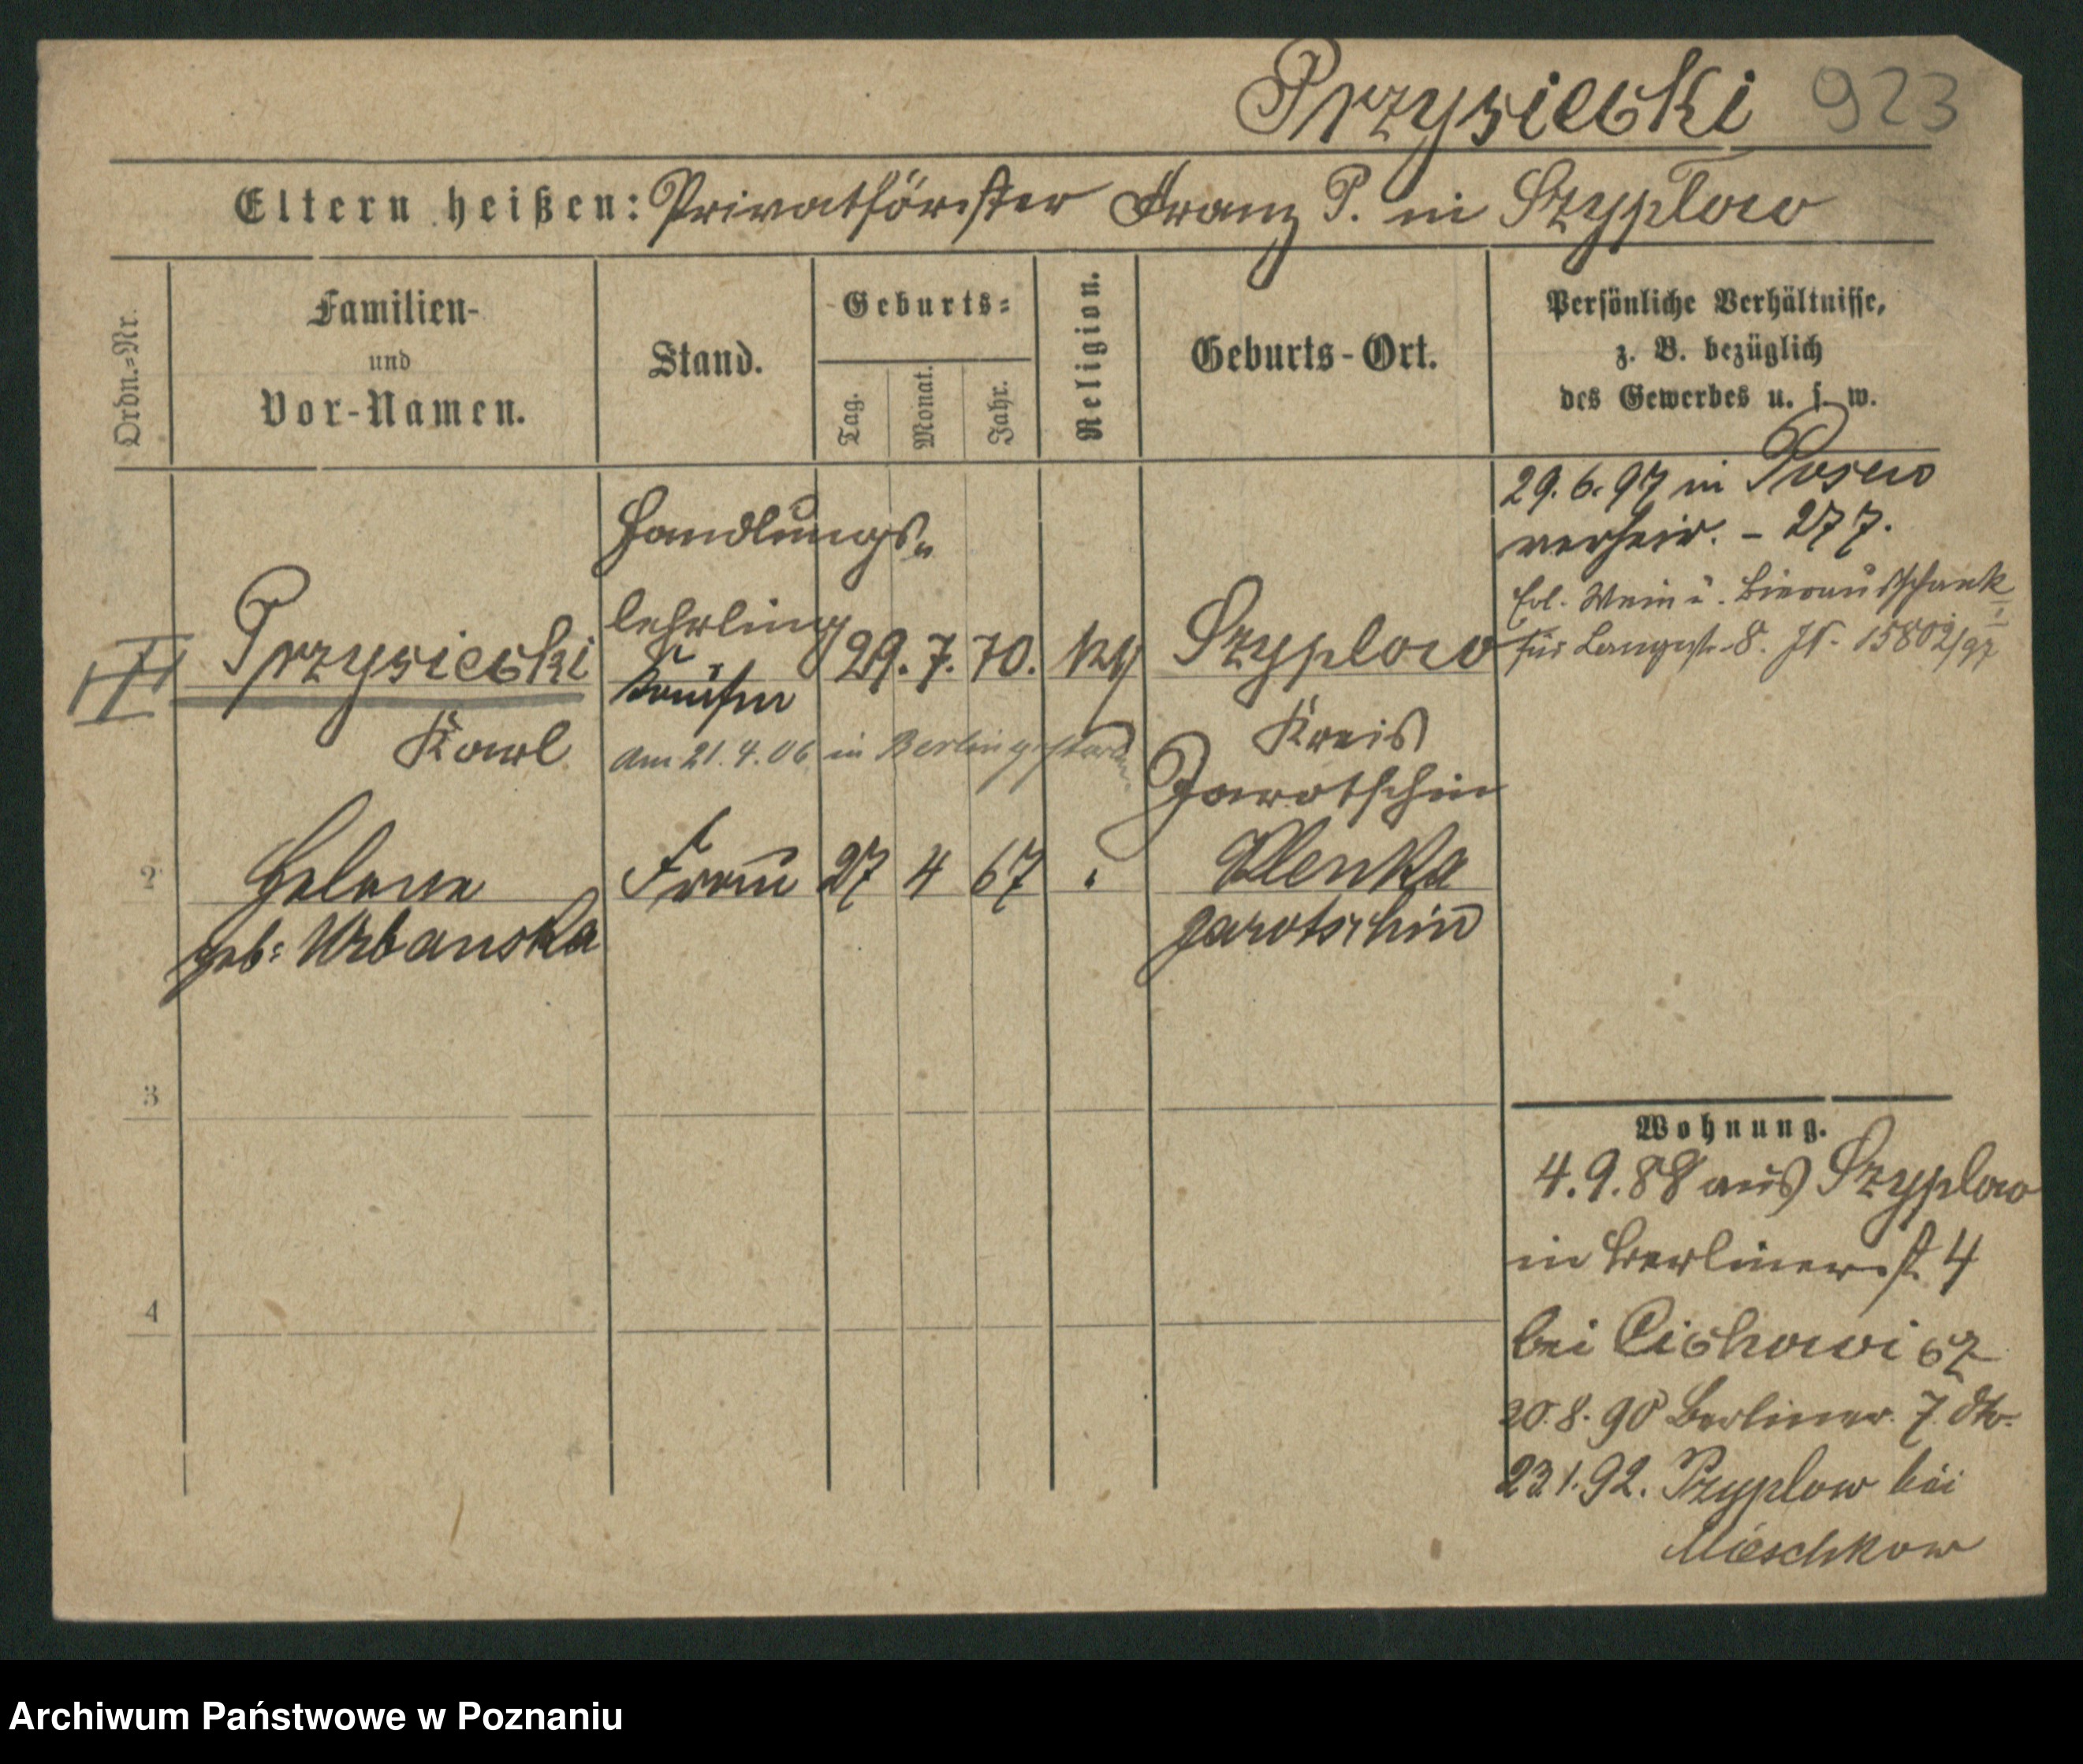 Przysiecki 923
Eltern heißen: Privatförster Franz P. in Szyplow
Ordn.-Nr.
Familien-
und
Vor-Namen.
Stand.
Geburts-
Tag.
Monat.
Jahr.
Religion.
Geburts-Ort.
Persönliche Verhältnisse,
z. B. bezüglich
des Gewerbes u. s. w.
III
Przysiecki
Karl
Handlungs-
lehrling
Kaufm
29. 7. 70.
Szyplow
Kreis
Jarotschin
am 21.4.06 in Berlin gestorben
29.6.97 in Posen
verheir. - 277.
Erl. Wein u. Bierausschank
für Langestr. 8. 15802/97
2
Helene
geb: Urbanska
Frau
27 4 67
Wlenka
Jarotschin
3
4
Wohnung.
4.9.88 aus Szyplow
in Berlinerst. 4
bei Cichowicz
20.8.90 Berliner. 7. dto.
23.1.92. Szyplow bei
Mieschkow
Archiwum Państwowe w Poznaniu